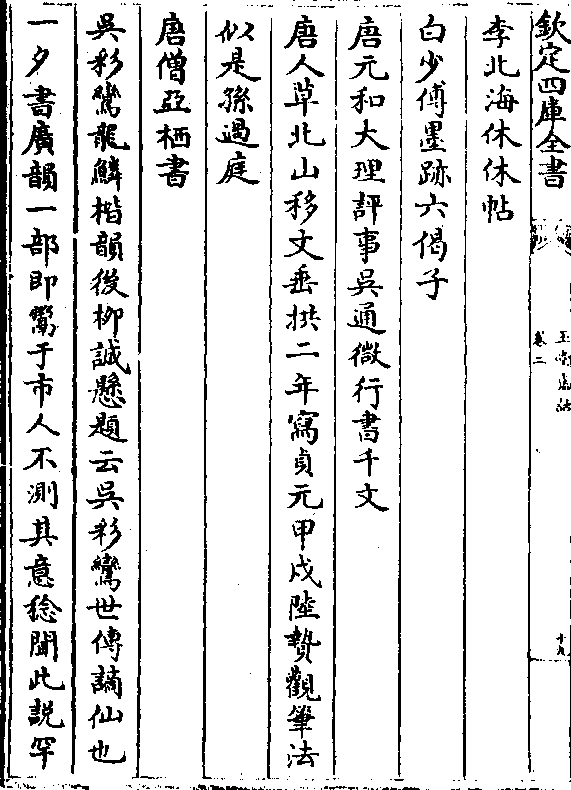 欽定四庫全書
玉堂嘉話
卷二
十九
李北海休休帖
白少傅墨跡六偈子
唐元和大理評事吳通微行書千文
唐人草北山移文垂拱二年寫貞元甲戍陸贄觀筆法
似是孫過庭
唐僧亞栖書
吳彩鸞龍鱗楷韻後栁誠懸題云吳彩鸞世傳謫仙也
一夕書廣韻一部即鬻于市人不測其意稔聞此説罕